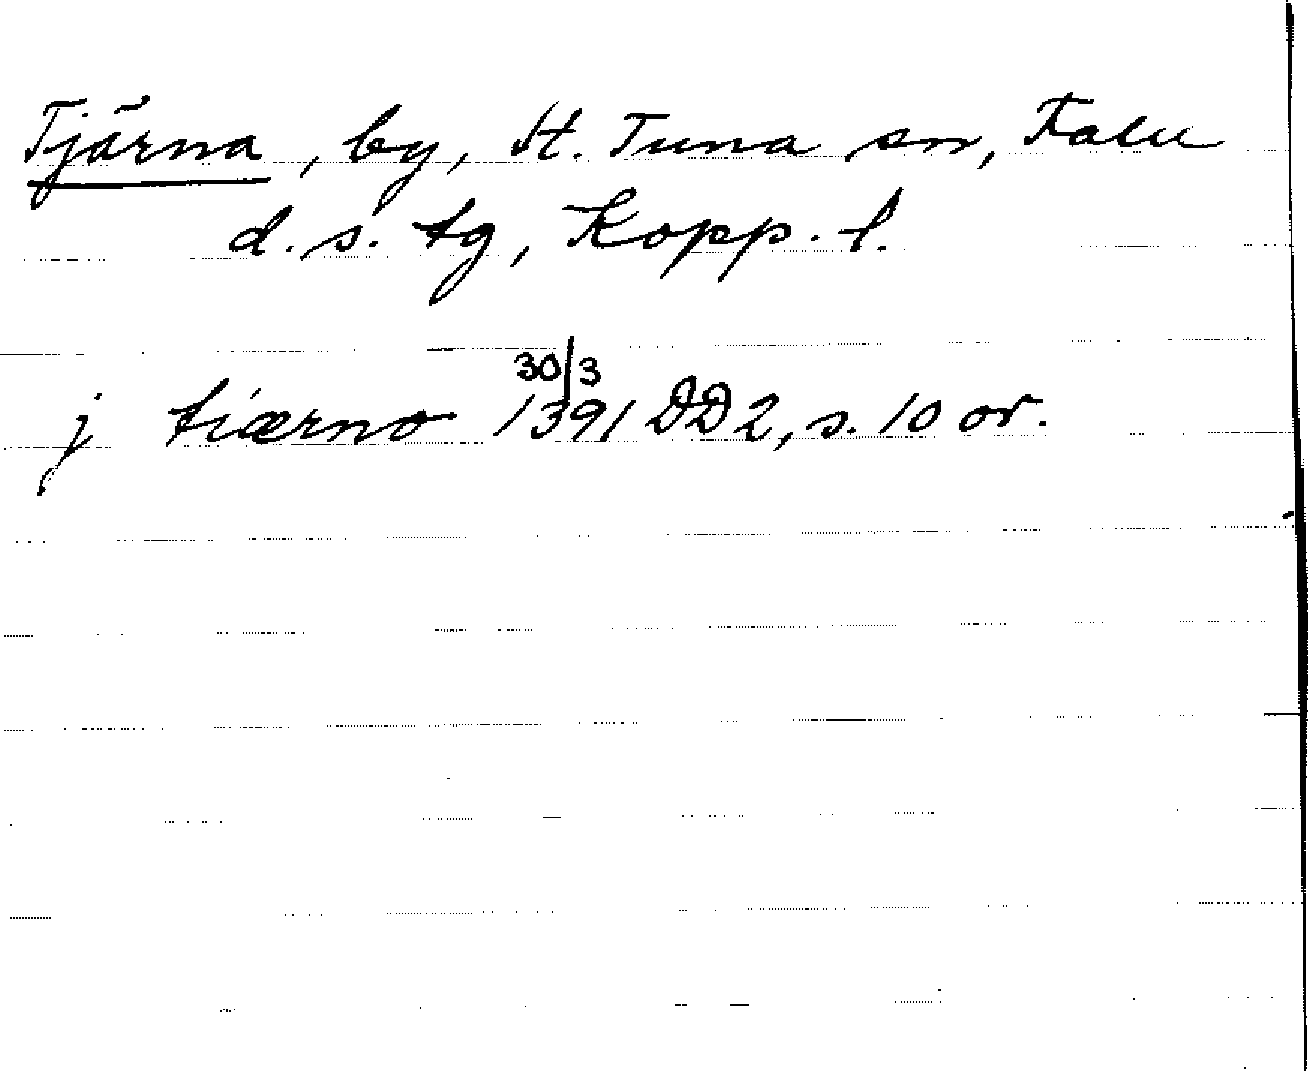 Tjärna, by, St. Tuna sn, Falu
d. s. tg, Kopp. l.
30/3
j tiærno 1391 DD2, s. 10 or.